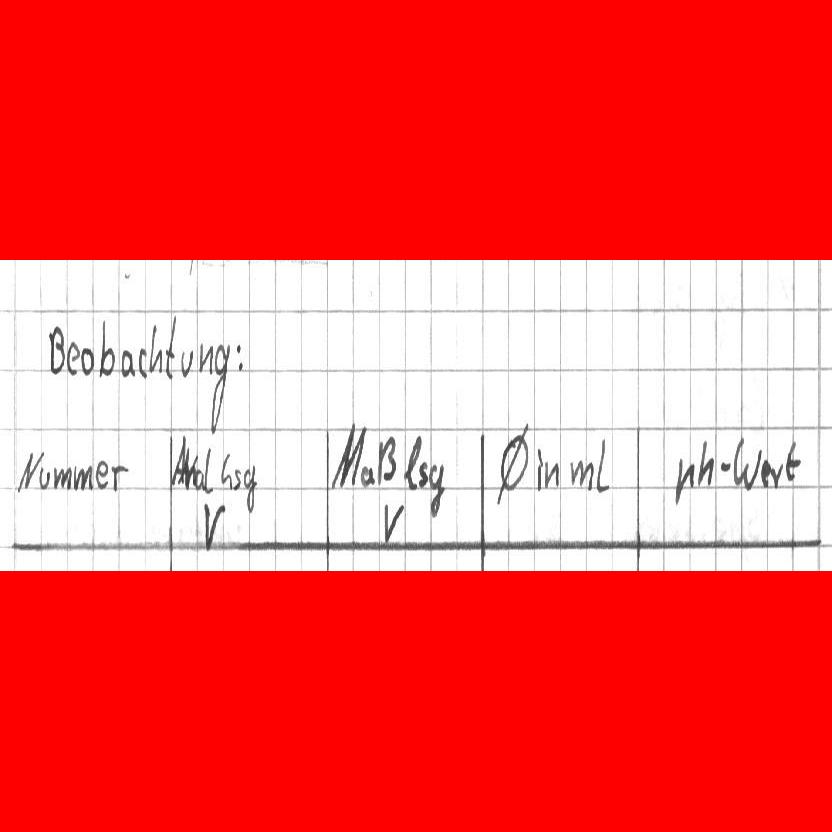 Beobachtung:
Nummer Anal Lsg Maß lsg Ø in ml ph-Wert
V V